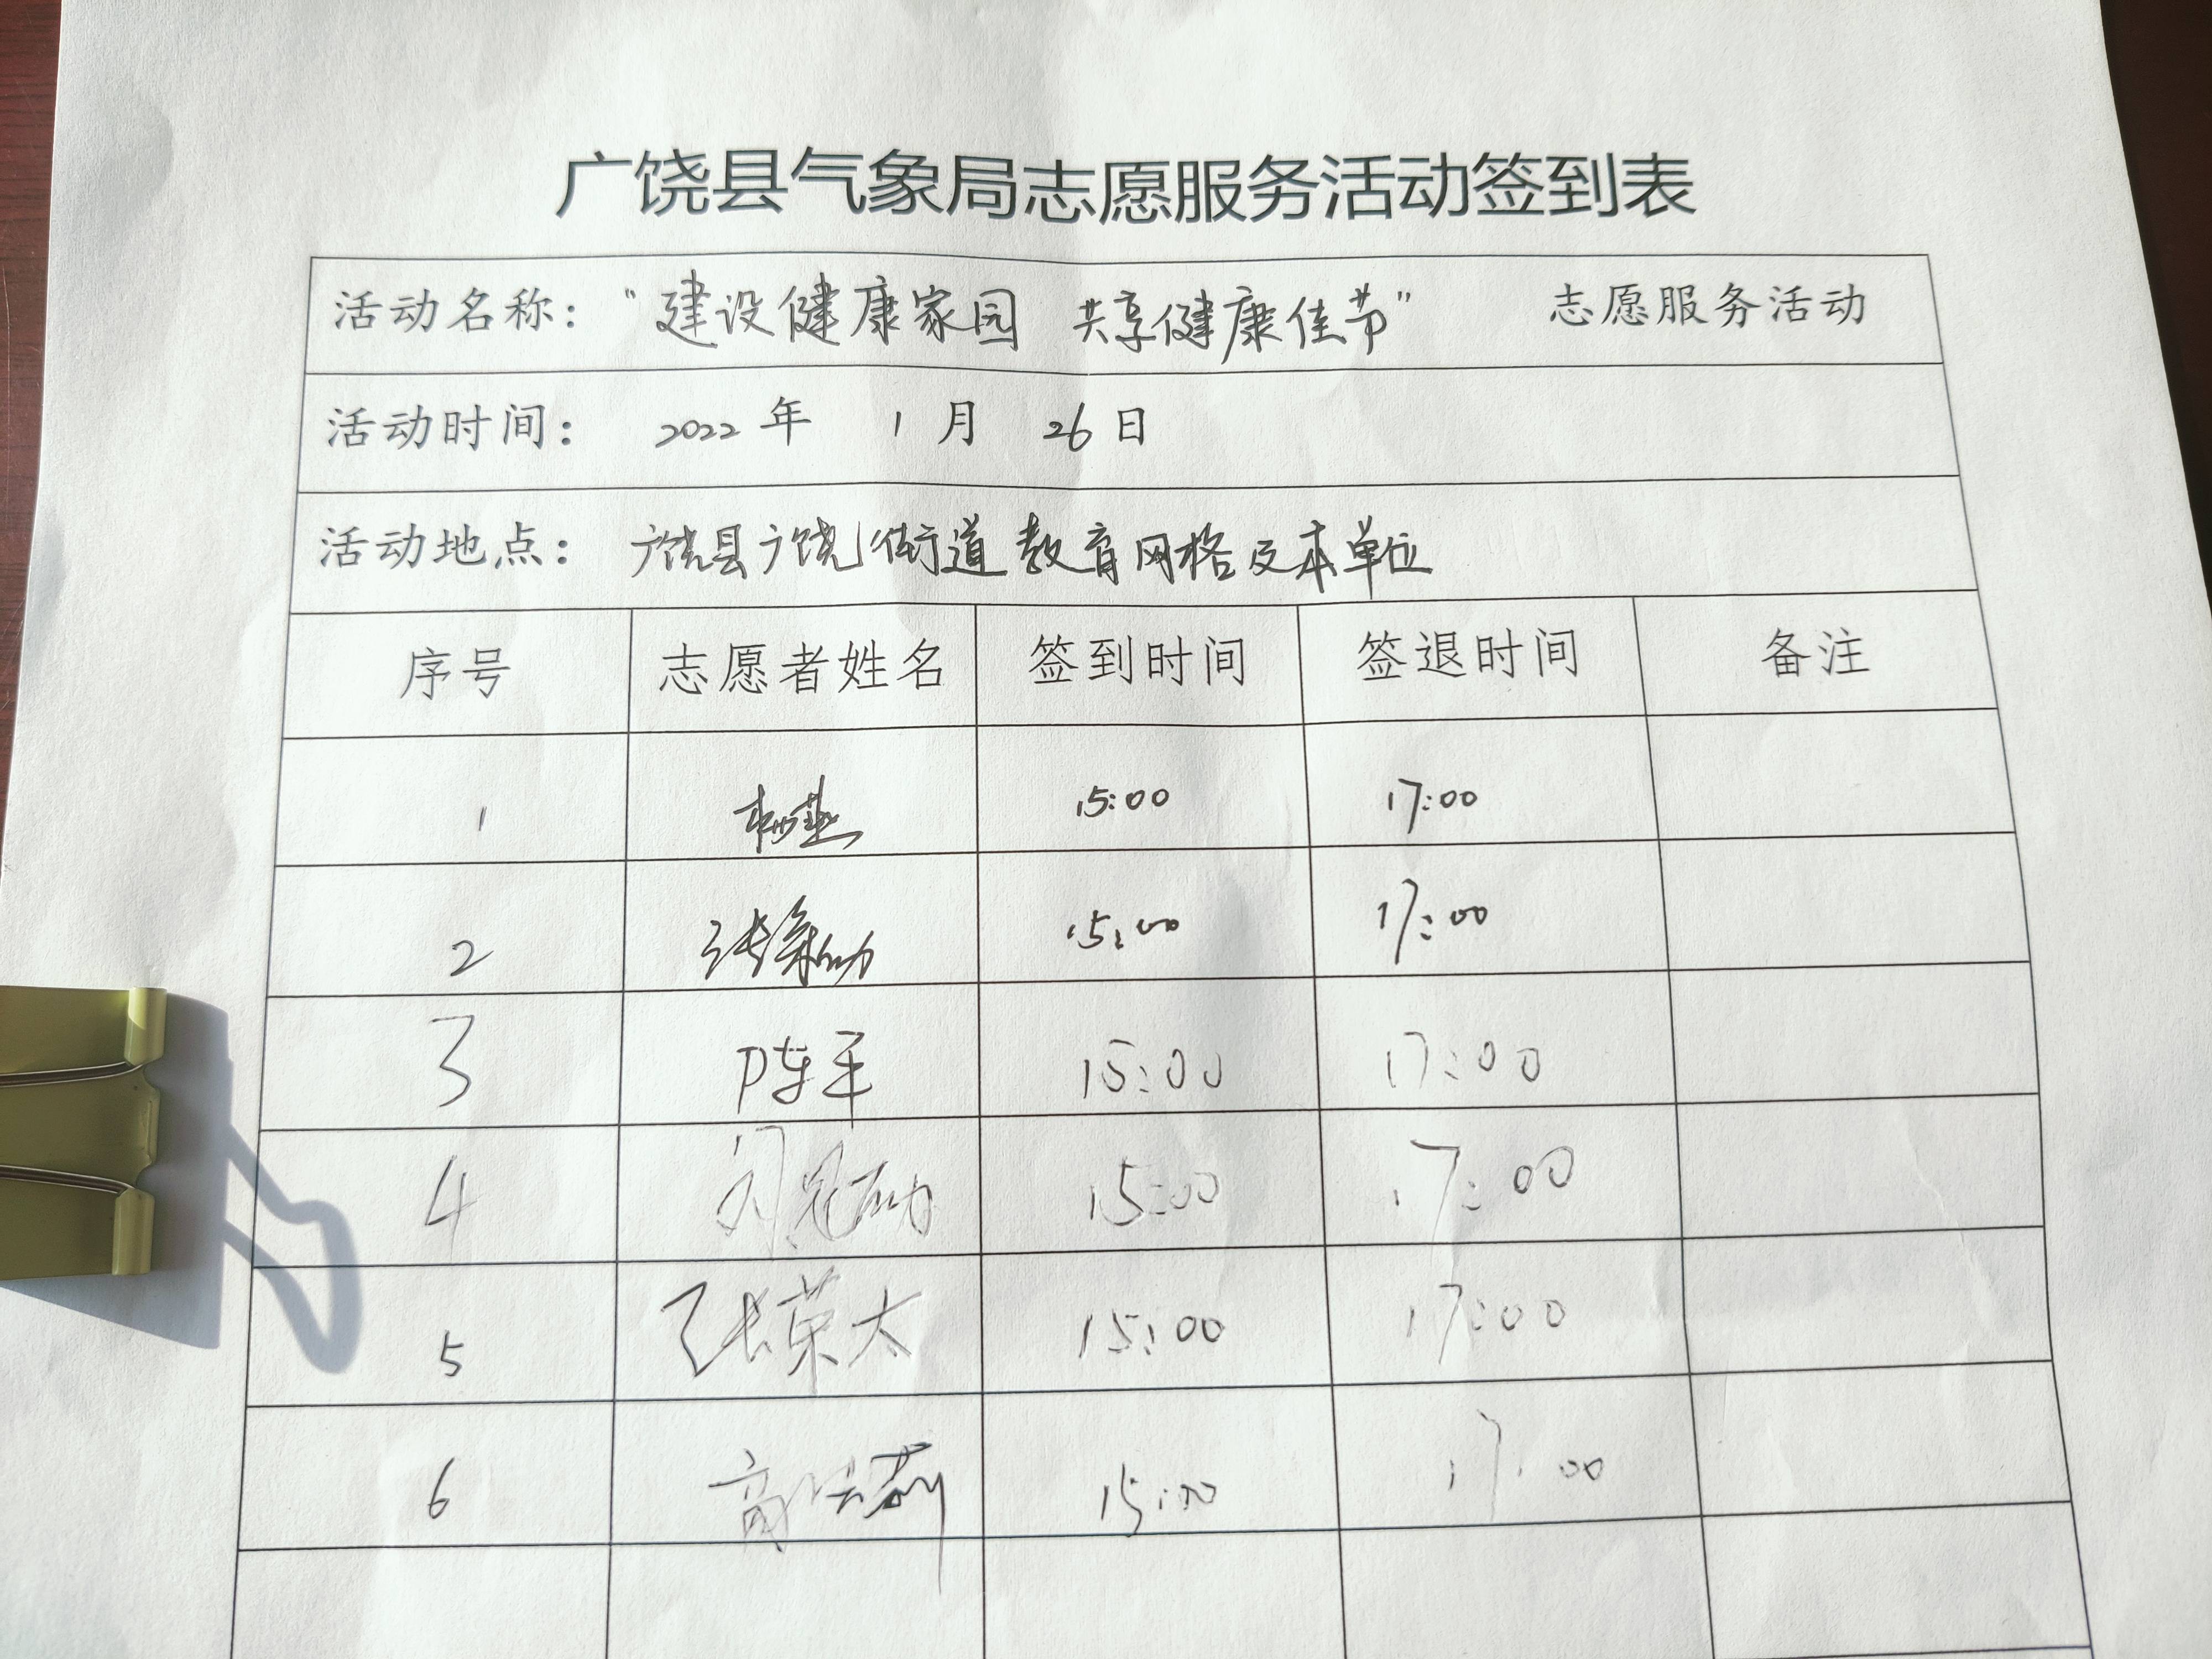 广饶县气象局志愿服务活动签到表
活动名称：“建设健康家园 共享健康佳节” 志愿服务活动
活动时间： 2022 年 1 月 26 日
活动地点： 广饶县广饶街道教育网格及本单位
序号 志愿者姓名 签到时间 签退时间 备注
1 15:00 17:00
2 15:00 17:00
3 15:00 17:00
4 15:00 17:00
5 张荣太 15:00 17:00
6 15:00 17:00